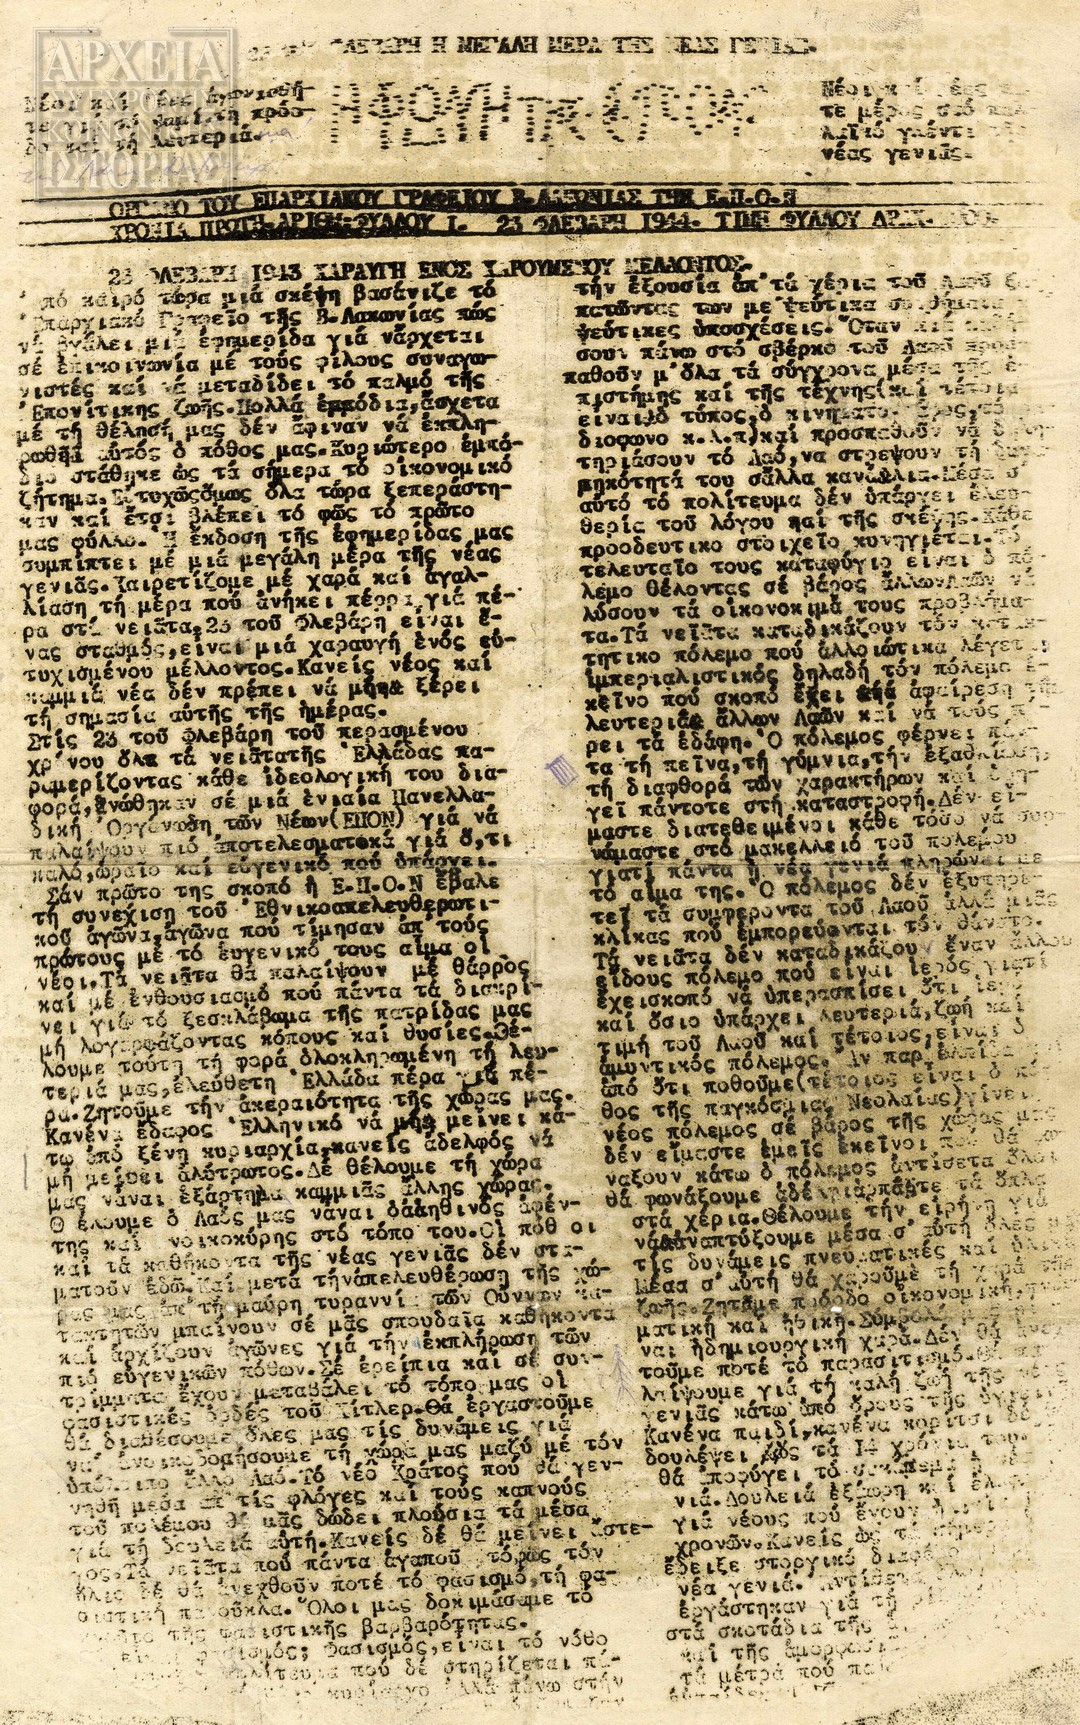 ΦΛΕΒΑΡΗ Η ΜΕΓΑΛΗ ΜΕΡΑ ΤΗΣ ΝΕΑΣ ΓΕΝΙΑΣ.
ΑΡΧΕΙΑ
ΣΥΓΧΡΟΝΗΣ
ΚΟΙΝΩΝΙΚΗΣ
ΙΣΤΟΡΙΑΣ
Νέοι καί νέες
τε γιά τό ψωμί, τη πρόο-
δο καί τή λευτεριά.
Νέοι καί νέες
τε μέρος στό
λαϊκό
νέας γενιᾶς.
ΟΡΓΑΝΟ ΤΟΥ ΕΠΑΡΧΙΑΚΟΥ ΓΡΑΦΕΙΟΥ Β.ΛΑΚΩΝΙΑΣ ΤΗΣ Ε.Π.Ο.Ν
ΧΡΟΝΙΑ ΠΡΩΤΗ.ΑΡΙΘΜ:ΦΥΛΛΟΥ Ι. 23 ΦΛΕΒΑΡΗ 1944. ΤΙΜΗ ΦΥΛΛΟΥ ΔΡΑΧ.
23 ΦΛΕΒΑΡΗ 1943 ΧΑΡΑΥΓΗ ΕΝΟΣ ΧΑΡΟΥΜΕΝΟΥ ΜΕΛΛΟΝΤΟΣ.
Ἀπό καιρό τώρα μιά σκέψη βασάνιζε τό
Ἐπαρχιακό Γραφεῖο τῆς Β.Λακωνίας πώς
νά βγάλει μιά ἐφημερίδα γιά νἄρχεται
σέ ἐπικοινωνία μέ τούς φίλους συναγω-
νιστές καί νά μεταδίδει τό παλμό τῆς
Ἐπονίτικης ζωῆς.Πολλά ἐμπόδια,ἄσχετα
μέ τή θέλησή μας δέν ἄφιναν νά ἐκπλη-
ρωθῆ αὐτός ὁ πόθος μας.Κυριώτερο ἐμπό-
διο στάθηκε ὡς τά σήμερα τό οἰκονομικό
ζήτημα.Εὐτυχῶς ὅμως ὅλα τώρα ξεπεράστη-
καν καί ἔτσι βλέπει τό φῶς τό πρῶτο
μας φύλλο. Ἡ ἔκδοση τῆς ἐφημερίδας μας
συμπίπτει μέ μιά μεγάλη μέρα τῆς νέας
γενιᾶς.Χαιρετίζομε μέ χαρά καί ἀγαλ-
λίαση τή μέρα πού ἀνήκει πέρα γιά πέ-
ρα στά νειᾶτα,23 τοῦ Φλεβάρη εἶναι ἕ-
νας σταθμός,εἶναι μιά χαραυγή ἑνός εὐ-
τυχισμένου μέλλοντος.Κανείς νέος καί
καμμιά νέα δέν πρέπει νά μή ξέρει
τή σημασία αὐτῆς τῆς ἡμέρας.
Στίς 23 τοῦ Φλεβάρη τοῦ περασμένου
χρόνου ὅλα τά νειᾶτα τῆς Ἑλλάδας πα-
ραμερίζοντας κάθε ἰδεολογική του δια-
φορά,ἑνώθηκαν σέ μιά ἑνιαία Πανελλα-
δική Ὀργάνωση τῶν Νέων(ΕΠΟΝ) γιά νά
παλαίψουν πιό ἀποτελεσματικά γιά ὅ,τι
καλό,ὡραῖο καί εὐγενικό πού ὑπάρχει.
Σάν πρῶτο της σκοπό ἡ Ε.Π.Ο.Ν ἔβαλε
τή συνέχιση τοῦ Ἐθνικοαπελευθερωτι-
κοῦ ἀγῶνα,ἀγῶνα πού τίμησαν ἀπ' τούς
πρώτους μέ τό εὐγενικό τους αἷμα οἱ
νέοι.Τά νειᾶτα θά παλαίψουν μέ θάρρος
καί μέ ἐνθουσιασμό πού πάντα τά διακρί-
νει γιά τό ξεσκλάβωμα τῆς πατρίδας μας
μή λογαριάζοντας κόπους καί θυσίες.Θέ-
λουμε τούτη τή φορά ὁλοκληρωμένη τή λευ-
τεριά μας,ἐλεύθερη Ἑλλάδα πέρα γιά πέ-
ρα.Ζητοῦμε τήν ἀκεραιότητα τῆς χώρας μας.
Κανένα ἔδαφος Ἑλληνικό νά μή μείνει κά-
τω ἀπό ξένη κυριαρχία,κανείς ἀδελφός νά
μή μείνει ἀλύτρωτος.Δέ θέλουμε τή χώρα
μας νἆναι ἐξάρτημα καμμιᾶς ἄλλης χώρας.
Θέλουμε ὁ Λαός μας νἆναι ἀληθινός ἀφέν-
της καί νοικοκύρης στό τόπο του.Οἱ πόθοι
καί τά καθήκοντα τῆς νέας γενιᾶς δέν στα-
ματοῦν ἐδῶ.Καί μετά τήν ἀπελευθέρωση τῆς χώ-
ρας μας ἀπ' τή μαύρη τυραννία τῶν Οὕννων κα-
τακτητῶν μπαίνουν σέ μᾶς σπουδαῖα καθήκοντα
καί ἀρχίζουν ἀγῶνες γιά τήν ἐκπλήρωση τῶν
πιό εὐγενικῶν πόθων.Σέ ἐρείπια καί σέ συν-
τρίμματα ἔχουν μεταβάλει τό τόπο μας οἱ
φασιστικές ὀρδές τοῦ Χίτλερ.Θά ἐργαστοῦμε
θά διαθέσουμε ὅλες μας τίς δυνάμεις γιά
νά ἀνοικοδομήσουμε τή χώρα μας μαζύ μέ τόν
ὑπόλοιπο ἄλλο Λαό.Τό νέο Κράτος πού θά γεν-
νηθῆ μέσα ἀπ' τίς φλόγες καί τούς καπνούς
τοῦ πολέμου θά μᾶς δώδει πλούσια τά μέσα
γιά τή δουλειά αὐτή.Κανείς δέ θά μείνει ἄστε-
γος.Τά νειᾶτα πού πάντα ἀγαποῦν τό φῶς τόν
ἥλιο δέ θά ἀνεχθοῦν ποτέ τό φασισμό,τή φα-
σιστική πανοῦκλα.Ὅλοι μας δοκιμάσαμε τό
τῆς φασιστικῆς βαρβαρότητας.
φασισμός; Φασισμός,εἶναι τό νόθο
πολίτευμα πού δέ στηρίζεται πά-
κυρίαρχο ἀλλά πάνω στήν
τήν ἐξουσία ἀπ' τά χέρια τοῦ Λαοῦ
πατῶντας των με ψεύτικα συνθήματα
ψεύτικες ὑποσχέσεις. Ὅταν πιά
σουν πάνω στό σβέρκο τοῦ Λαοῦ προσ-
παθοῦν μ' ὅλα τά σύγχρονα μέσα τῆς ἐ-
πιστήμης καί τῆς τέχνης(καί τέτοια
εἶναι ὁ τύπος,ὁ κινηματογράφος,τό ρα-
διοφωνο κ.λ.π)καί προσπαθοῦν νά
τηριάσουν τό Λαό,να στρέψουν τή
μηκότητά του σἄλλα κανάλια.Μέσα σ'
αὐτό τό πολίτευμα δέν ὑπάρχει ἐλευ-
θερία τοῦ λόγου καί τῆς σκέψης.Κάθε
προοδευτικο στοιχεῖο κυνηγιέται.Τό
τελευταῖο τους καταφύγιο εἶναι ὁ πό-
λεμο θέλοντας σέ βάρος ἄλλων Λαῶν νά
λύσουν τά οἰκονομικά τους προβλήμα-
τα.Τά νειᾶτα καταδικάζουν τόν κατακ-
τητικο πόλεμο πού ἀλλοιώτικα λέγεται
ἰμπεριαλιστικός δηλαδή τόν πόλεμο ἐ-
κεῖνο πού σκοπό ἔχει ἀφαίρεση τῆς
λευτεριᾶς ἄλλων Λαῶν καί νά τούς πά-
ρει τά ἐδάφη. Ὁ πόλεμος φέρνει πάν-
τα τή πεῖνα,τή γύμνια,τήν ἐξαθλίωση,
τή διαφθορά τῶν χαρακτήρων καί ὁδη-
γεῖ πάντοτε στή καταστροφή.Δέν εἴ-
μαστε διατεθειμένοι κάθε τόσο νά συρ-
νώμαστε στό μακελλειό τοῦ πολέμου
γιατί πάντα ἡ νέα γενιά πληρώνει με
τό αἷμα της. Ὁ πόλεμος δέν ἐξυπηρε-
τεῖ τά συμφέροντα τοῦ Λαοῦ ἀλλά μιᾶς
κλίκας πού ἐμπορεύονται τόν θάνατο.
Τά νειᾶτα δέν καταδικάζουν ἕναν ἄλλου
εἴδους πόλεμο πού εἶναι ἱερός γιατί
ἔχει σκοπό νά ὑπερασπίσει ὅτι ἱερό
καί ὅσιο ὑπάρχει λευτεριά,ζωή καί
τιμή τοῦ Λαοῦ καί τέτοιος,εἶναι ὁ
ἀμυντικός πόλεμος. Ἄν παρ' ἐλπίδα
ἀπό ὅτι ποθοῦμε(τέτοιος εἶναι ὁ πό-
θος τῆς παγκόσμιας Νεολαίας)γίνει
νέος πόλεμος σέ βάρος τῆς χώρας μας
δέν εἴμαστε ἐμεῖς ἐκεῖνοι πού θά φω-
νάξουν κάτω ὁ πόλεμος ἀντίθετα ὅλοι
θά φωνάξουμε ἀδέλφια ἁρπᾶξτε τά ὅπλα
στά χέρια.Θέλουμε τήν εἰρήνη γιά
νά ἀναπτύξουμε μέσα σ' αὐτή ὅλες μας
τίς δυνάμεις πνευματικές καί ὑλικές
Μέσα σ' αὐτή θά χαροῦμε τή χαρά τῆς
ζωῆς.Ζητᾶμε πρόοδο οἰκονομική,
ματική καί ἠθική.Σύμβολό μας
ναι ἡ δημιουργική χαρά.Δέν θά ἀνεχ-
τοῦμε ποτέ τό παρασιτισμό.Θά πα-
λαίψουμε γιά τή καλή ζωή τῆς νέας
γενιᾶς κάτω ἀπό ὅρους τῆς ὑγιεινῆς
Κανένα παιδί,κανένα κορίτσι δέ θά
δουλέψει ὡς τά 14 χρόνια του.
θά ἀποφύγει τό
νιά.Δουλειά ἑξάωρη καί
γιά νέους πού ἔχουν ἡλικία
χρονῶν.Κανείς ὡς τά σήμερα
ἔδειξε στοργικό διαφέρον
νέα γενιά. Ἀντίθετα ὅλοι
ἐργάστηκαν γιά τή
στά σκοτάδια τῆς
καί τῆς ἀμορφωσιᾶς
τά μέτρα πού